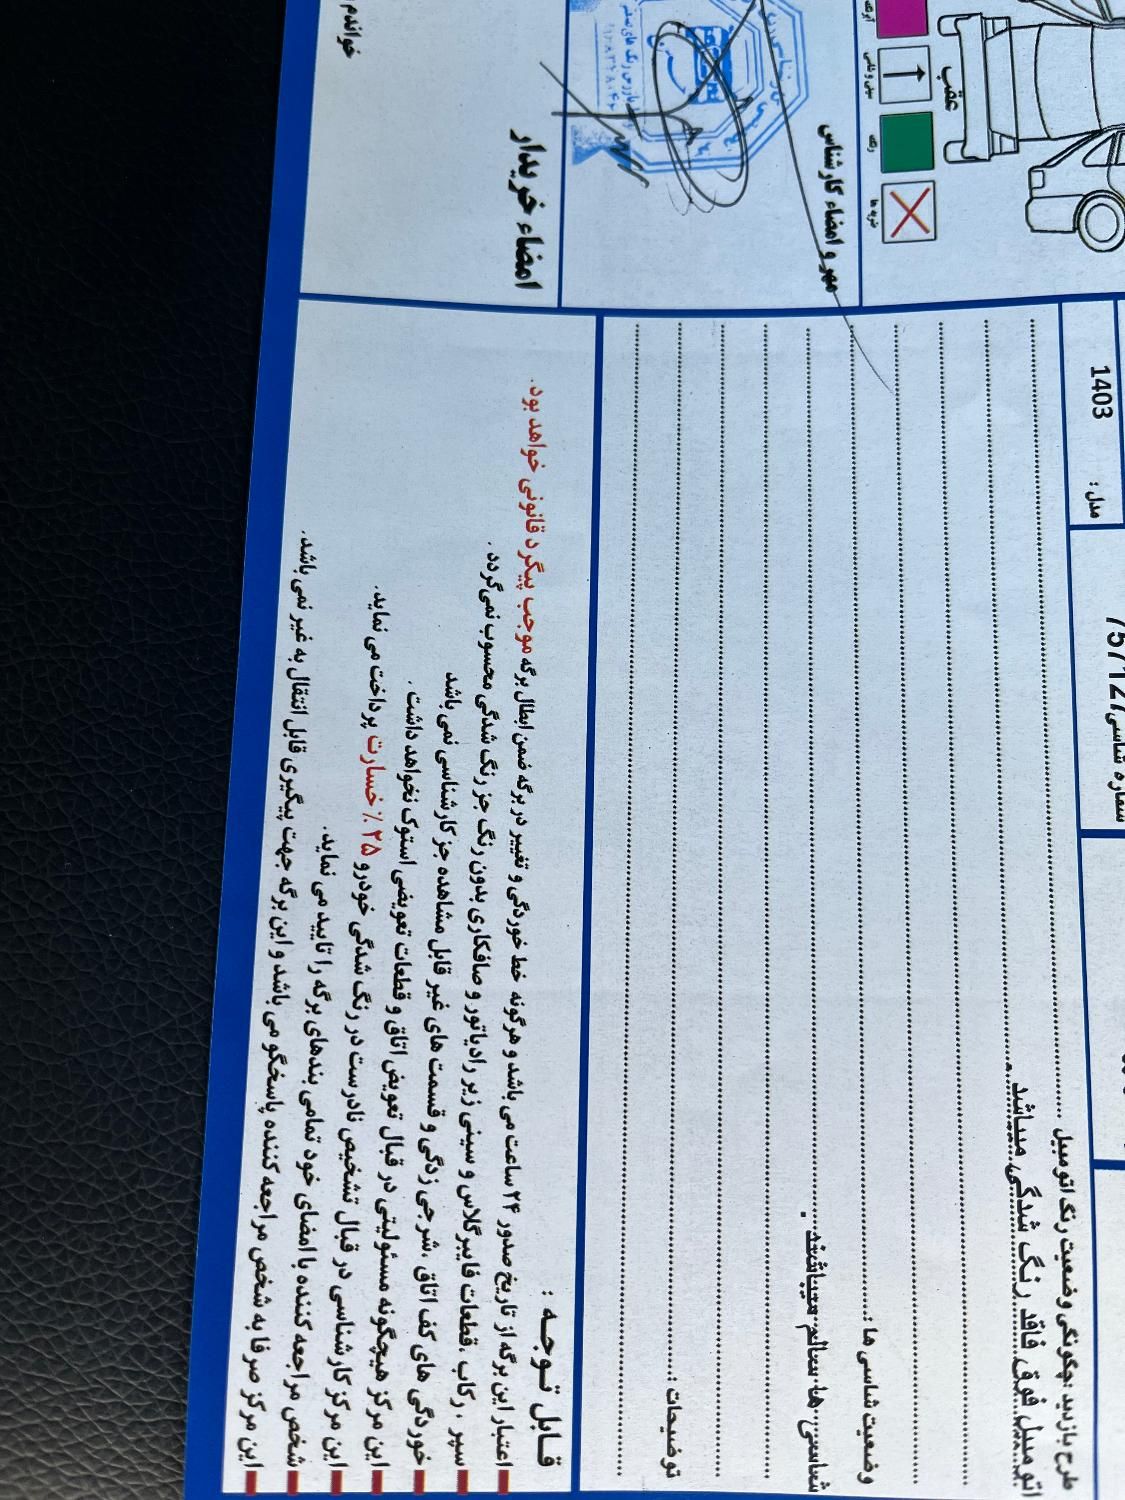 عقب
رنگ
مدل : 1403
شماره شاسی
طرح بازدید :چگونگی وضعیت رنگ اتومبیل
اتومبیل فوق فاقد رنگ شدگی میباشد
وضعیت شاسی ها :
شاسی ها سالم میباشند .
توضیحات :
مهر و امضاء کارشناس
امضاء خریدار
خواندم
قابل توجه :
اعتبار این برگه از تاریخ صدور ۲۴ ساعت می باشد و هرگونه خط خوردگی و تغییر در برگه ضمن ابطال برگه موجب پیگرد قانونی خواهد بود.
سپر ، رکاب ،قطعات فایبرگلاس و سینی زیر رادیاتور و صافکاری بدون رنگ جز رنگ شدگی محسوب نمی‌گردد .
خوردگی های کف اتاق ،شرحی زدگی و قسمت های غیر قابل مشاهده جز کارشناسی نمی باشد
این مرکز هیچگونه مسئولیتی در قبال تعویض اتاق و قطعات تعویضی استوک نخواهد داشت .
این مرکز کارشناسی در قبال تشخیص نادرست در رنگ شدگی خودرو ۲۵ ٪ خسارت پرداخت می نماید.
شخص مراجعه کننده با امضای خود تمامی بندهای برگه را تایید می نماید.
این مرکز صرفا به شخص مراجعه کننده پاسخگو می باشد و این برگه جهت پیگیری قابل انتقال به غیر نمی باشد.